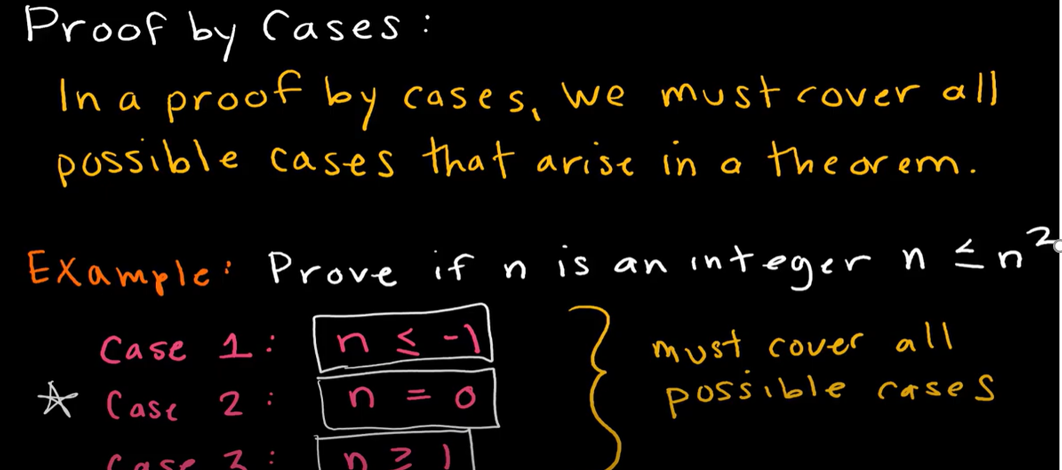 Proof by Cases:
In a proof by cases, we must cover all
possible cases that arise in a theorem.
Example: Prove if n is an integer n ≤ n²
Case 1: n ≤ -1
must cover all
☆ Case 2: n = 0
possible cases
Case 3: n ≥ 1